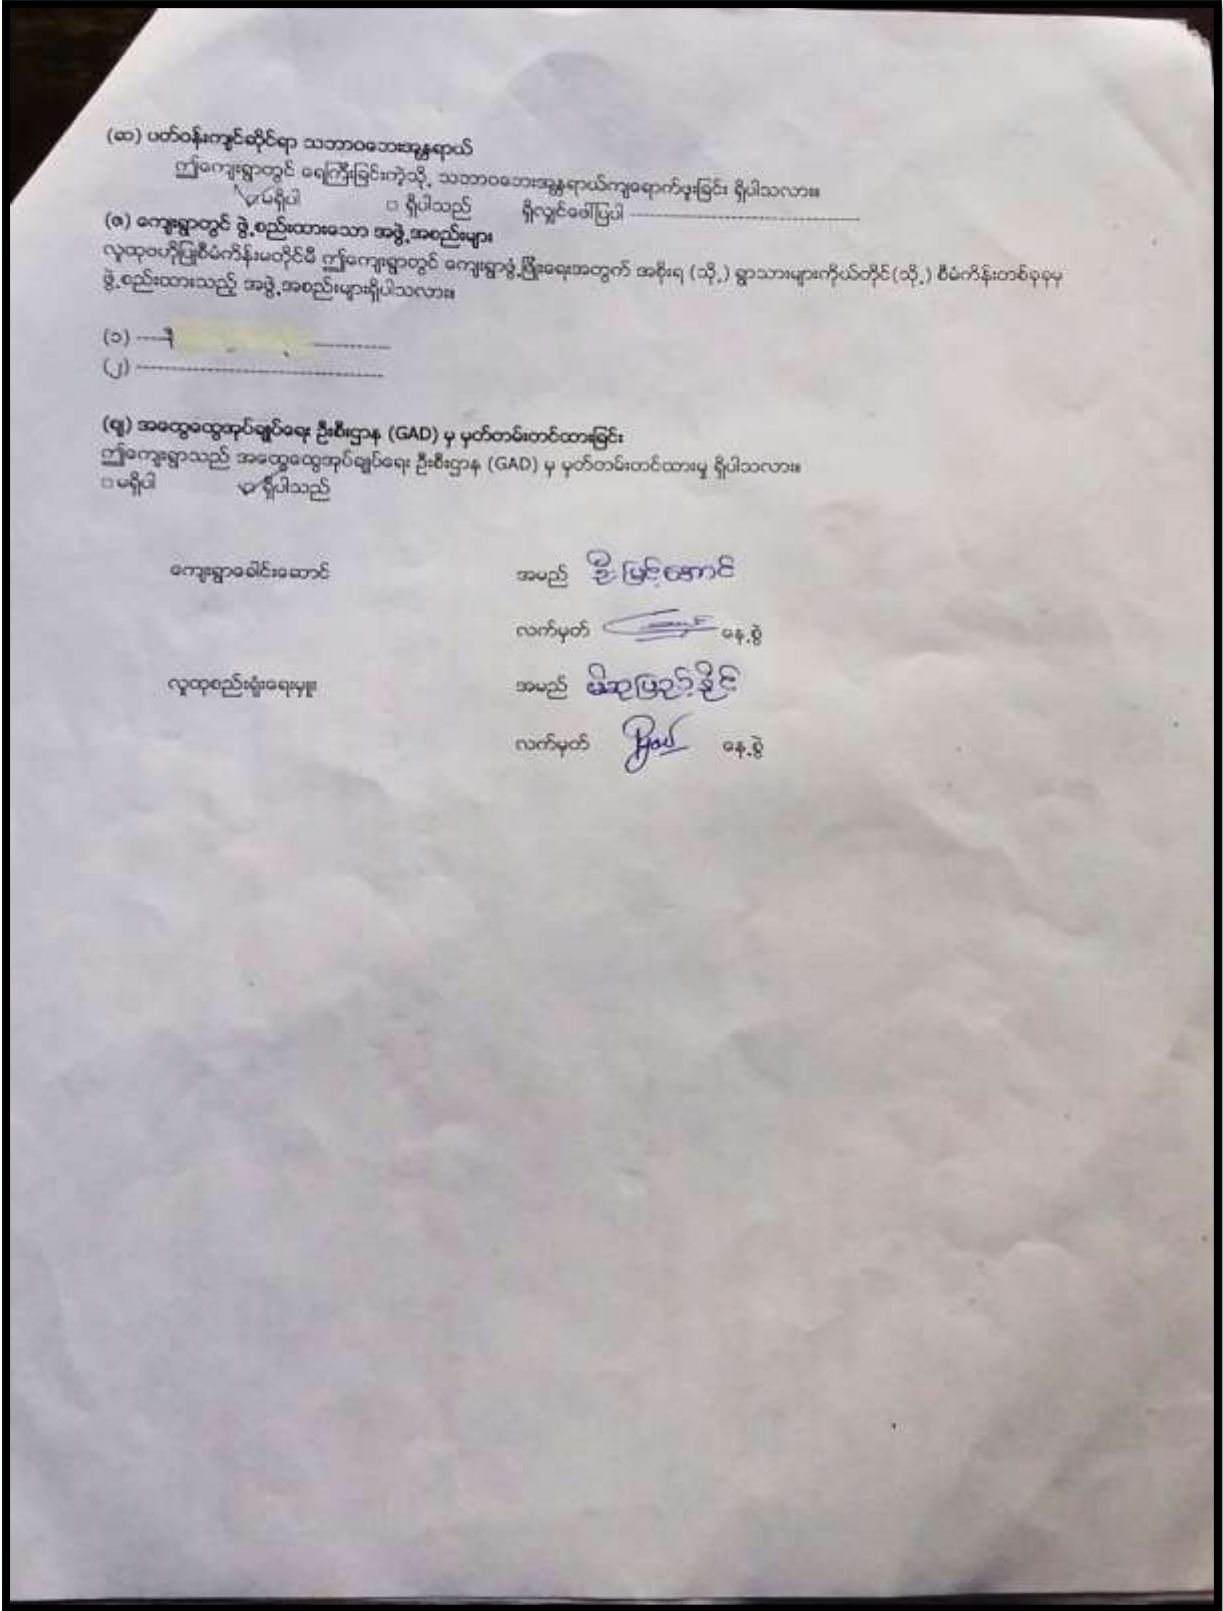 (ဆ) ပတ်ဝန်းကျင်ဆိုင်ရာ သဘာဝဘေးအန္တရာယ်
ဤကျေးရွာတွင် ရေကြီးခြင်းကဲ့သို့ သဘာဝဘေးအန္တရာယ်ကျရောက်ဖူးခြင်း ရှိပါသလား။
☑ မရှိပါ □ ရှိပါသည် ရှိလျှင်ဖေါ်ပြပါ ------------------------------
(ဇ) ကျေးရွာတွင် ဖွဲ့စည်းထားသော အဖွဲ့အစည်းများ
လူထုဗဟိုပြုစီမံကိန်းမတိုင်မီ ဤကျေးရွာတွင် ကျေးရွာဖွံ့ဖြိုးရေးအတွက် အစိုးရ (သို့) ရွာသားများကိုယ်တိုင်(သို့) စီမံကိန်းတစ်ခုခုမှ
ဖွဲ့စည်းထားသည့် အဖွဲ့အစည်းများရှိပါသလား။
(၁) ----
(၂) ------------------------------
(ဈ) အထွေထွေအုပ်ချုပ်ရေး ဦးစီးဌာန (GAD) မှ မှတ်တမ်းတင်ထားခြင်း
ဤကျေးရွာသည် အထွေထွေအုပ်ချုပ်ရေး ဦးစီးဌာန (GAD) မှ မှတ်တမ်းတင်ထားမှု ရှိပါသလား။
□ မရှိပါ ☑ ရှိပါသည်
ကျေးရွာခေါင်းဆောင် အမည် ဦးမြင့်အောင်
လက်မှတ် နေ့စွဲ
လူထုစည်းရုံးရေးမှူး အမည် မိဆုပြည့်နိုင်
လက်မှတ် နေ့စွဲ